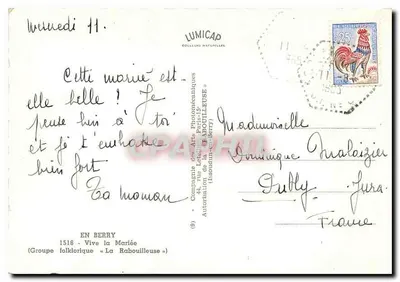 Mercredi 11.
LUMICAP
Cette mariée est-
elle belle ! Je
pense bien à toi
et je t'embrasse
bien fort
Ta maman
EN BERRY
1516 - Vive la Mariée
(Groupe folklorique « La Rabouilleuse »)
Compagnie des Arts Photomécaniques
Autorisation de la « RABOUILLEUSE »
Mademoiselle
Dominique Malaizier
Jura
France